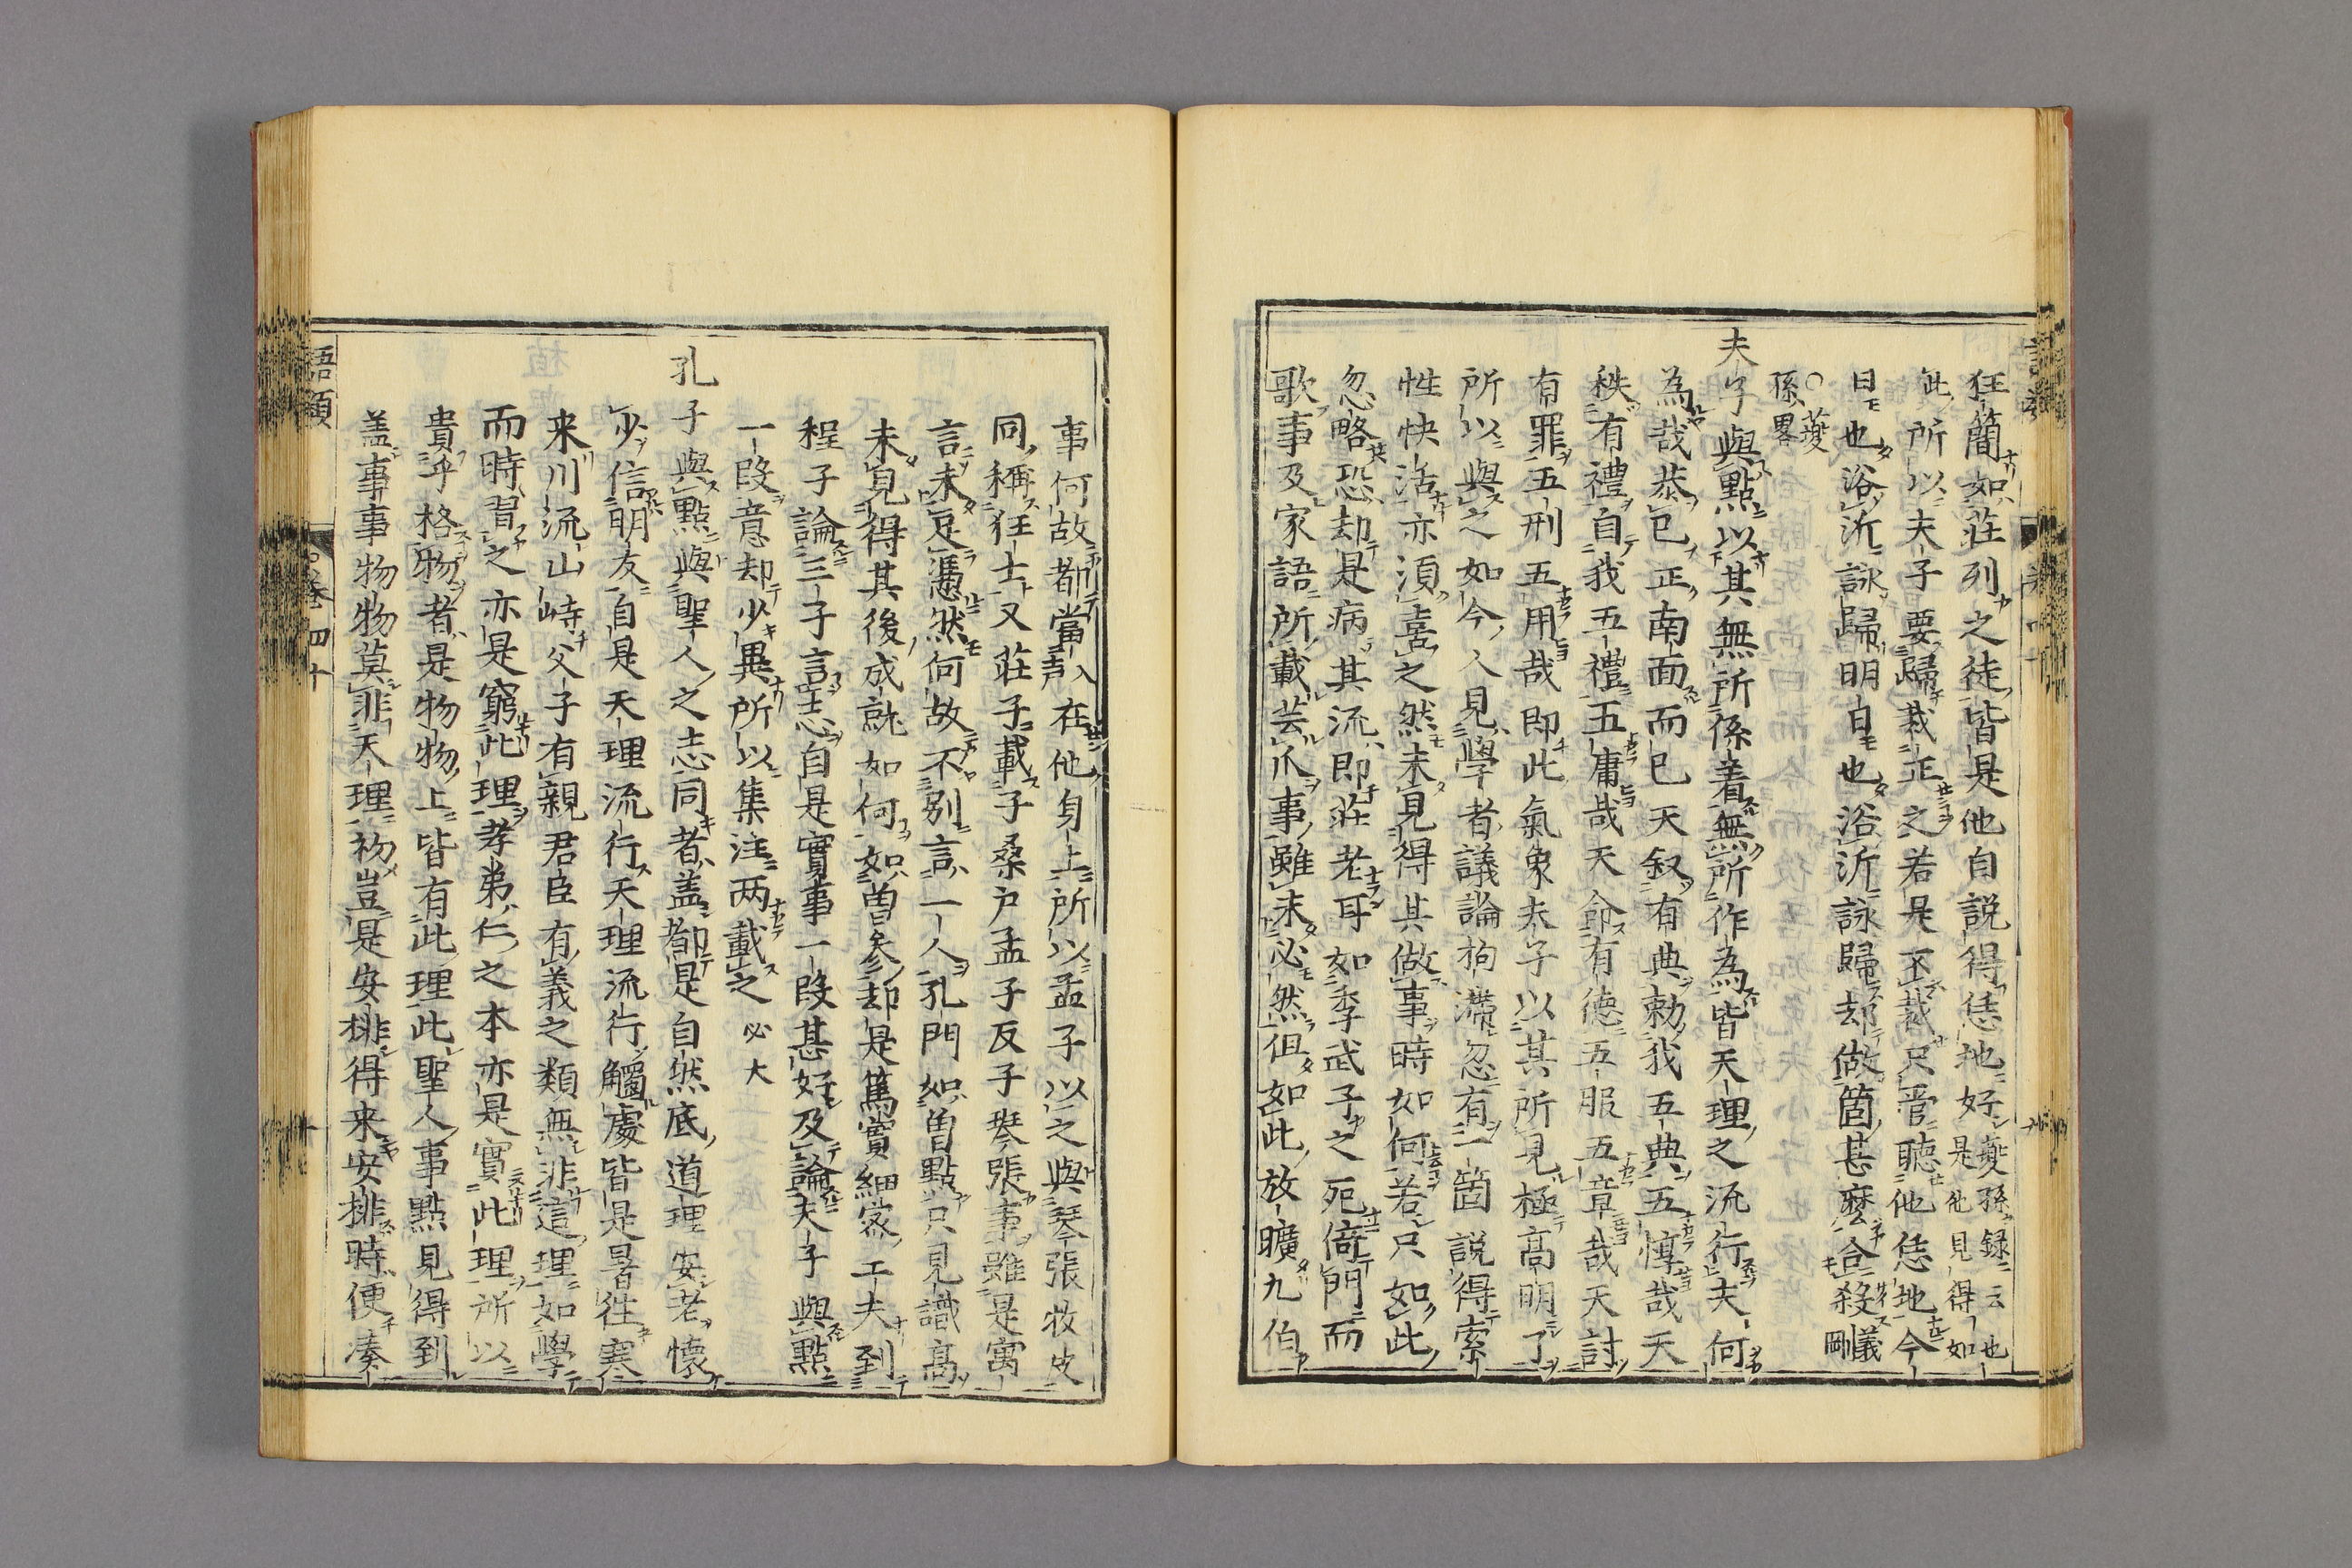 狂簡如莊列之徒皆是他自説得恁地好夔孫録云也是他見得如
此所以夫子要歸裁正之若是不裁只管聴他恁地今
日也浴沂詠歸明日也浴沂詠歸却做箇甚麽合殺義剛
○夔孫畧
夫子與點以其無所係着無所作為皆天理之流行夫何
為哉恭己正南面而已天叙有典勅我五典五惇哉天
秩有禮自我五禮五庸哉天命有徳五服五章哉天討
有罪五刑五用哉即此氣象夫子以其所見極髙明了
所以與之如今人見學者議論拘滯忽有一箇説得索
性快活亦須喜之然未見得其做事時如何若只如此
忽略恐却是病其流即莊老耳如季武子之死倚門而
歌事及家語所載芸爪事雖未必然但如此放曠九伯
事何故都當入声在他身上所以孟子以之與琴張牧皮
同稱狂士又莊子載子桑户孟子反子琴張事雖是寓
言未足憑然何故不别言一人孔門如曽點只見識髙
未見得其後成就如何如曽参却是篤實細宻工夫到
程子論三子言志自是實事一段甚好及論夫子與點
一段意却少異所以集注两載之 必大
孔子與點與聖人之志同者盖都是自然底道理安老懐
少信朋友自是天理流行天理流行觸處皆是暑徃寒
来川流山峙父子有親君臣有義之類無非這理如學
而時習之亦是窮此理孝弟仁之本亦是實此理所以
貴乎格物者是物物上皆有此理此聖人事點見得到
盖事事物物莫非天理初豈是安排得来安排時便湊
語類
卷四十